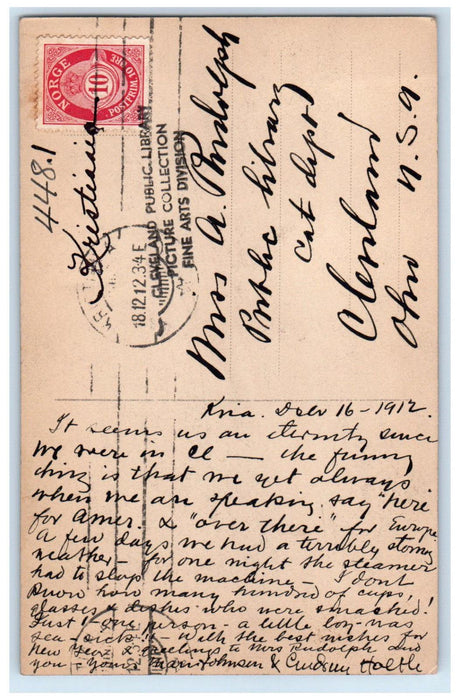 NORGE
10
POSTFRIM
448.1
Kristiania
CLEVELAND PUBLIC LIBRARY
PICTURE COLLECTION
FINE ARTS DIVISION
18.12.12.34E
Miss A. Rudolph
Public Library
Cat. Dept
Cleveland
Ohio U.S.A.
Kria. Decbr 16 - 1912.
It seems us an eternity since
we were in Cl — the funny
thing is that we yet always
when we are speaking say "here"
for Amer. & "over there" for Europe
A few days we had a terribly stormy
weather - for one night the steamer
had to stop the machine - I don't
know how many hundred of cups,
glasses & dishes who were smashed!
Just one person - a little boy - was
sea-sick!! - With the best wishes for
New Year & greetings to Mrs Rudolph and
you - your Johnson &